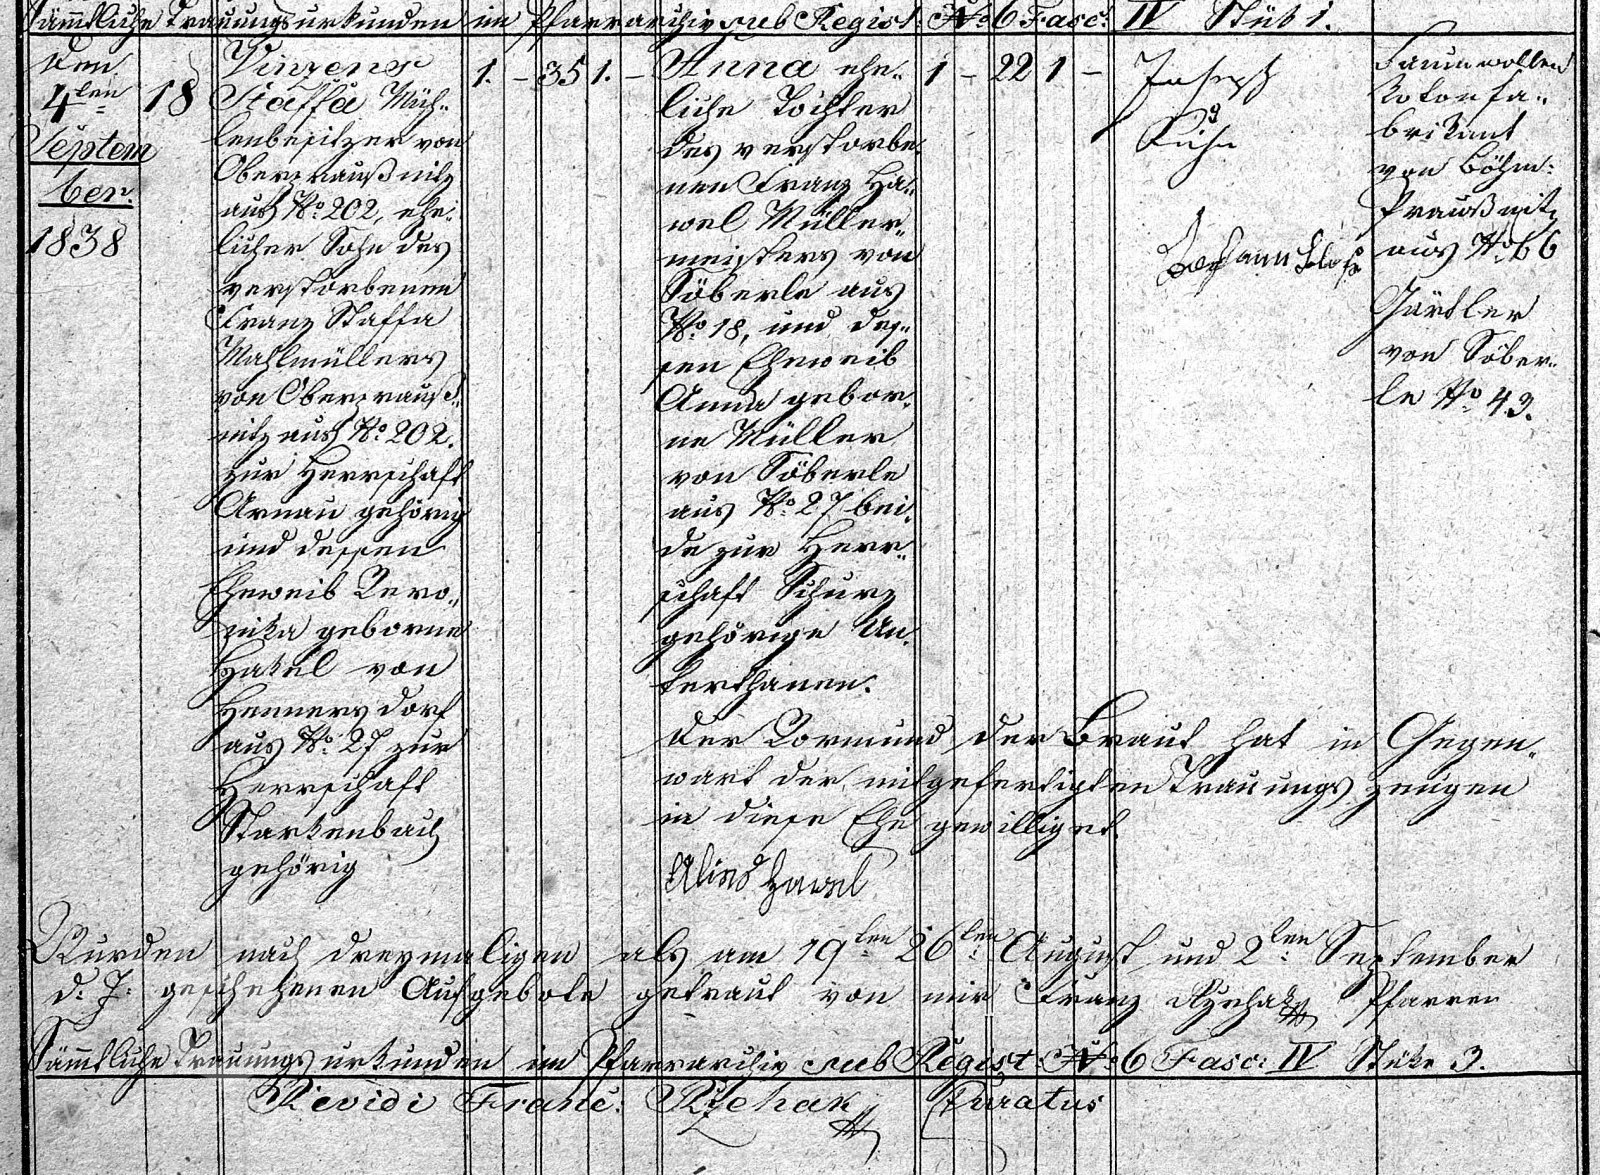 Sämmtliche Trauungsurkunden im Pfarrarchiv sub Regist: No 6 Fasc: IV Stük 1.
Den
4ten
Septem
ber.
1838
18
Vinzenz
Staffa Müh-
lenbesitzer von
Oberpraußnitz
aus No 202, ehe-
licher Sohn des
verstorbenen
Franz Staffa
Mahlmüllers
von Oberprauß-
nitz aus No 202.
zur Herrschaft
Arnau gehörig
und dessen
Eheweib Vero-
nika geborne
Hakel von
Hennersdorf
aus No 27 zur
Herrschaft
Starkenbach
gehörig
1. - 35 1. -
Anna ehe-
liche Tochter
des verstorbe-
nen Franz Ha-
wel Müller-
meisters von
Söberle aus
No 18, und des-
sen Eheweib
Anna gebor-
ne Müller
von Söberle
aus No 27 bei-
de zur Herr-
schaft Schurz
gehörige Un-
terthanen.
1 - 22 1 -
Joseph
Kühn
Johann
Baumwollen
fa-
brikant
von Böhm:
Praußnitz
aus No 66
Gärtler
von Söber-
le No 43.
Der Vormund der Braut hat in Gegen-
wart der mitgefertigten Trauungszeugen
in diese Ehe gewilliget.
Hawel
Wurden nach dreymaligen als am 19ten 26ten August und 2ten September
d: J: geschehenen Aufgebote getraut von mir Franz Ržehak Pfarrer
Sämmtliche Trauungsurkunden im Pfarrarchiv sub Regist: No 6 Fasc: IV Stüke 3.
Revidi Franc: Ržehak Curatus